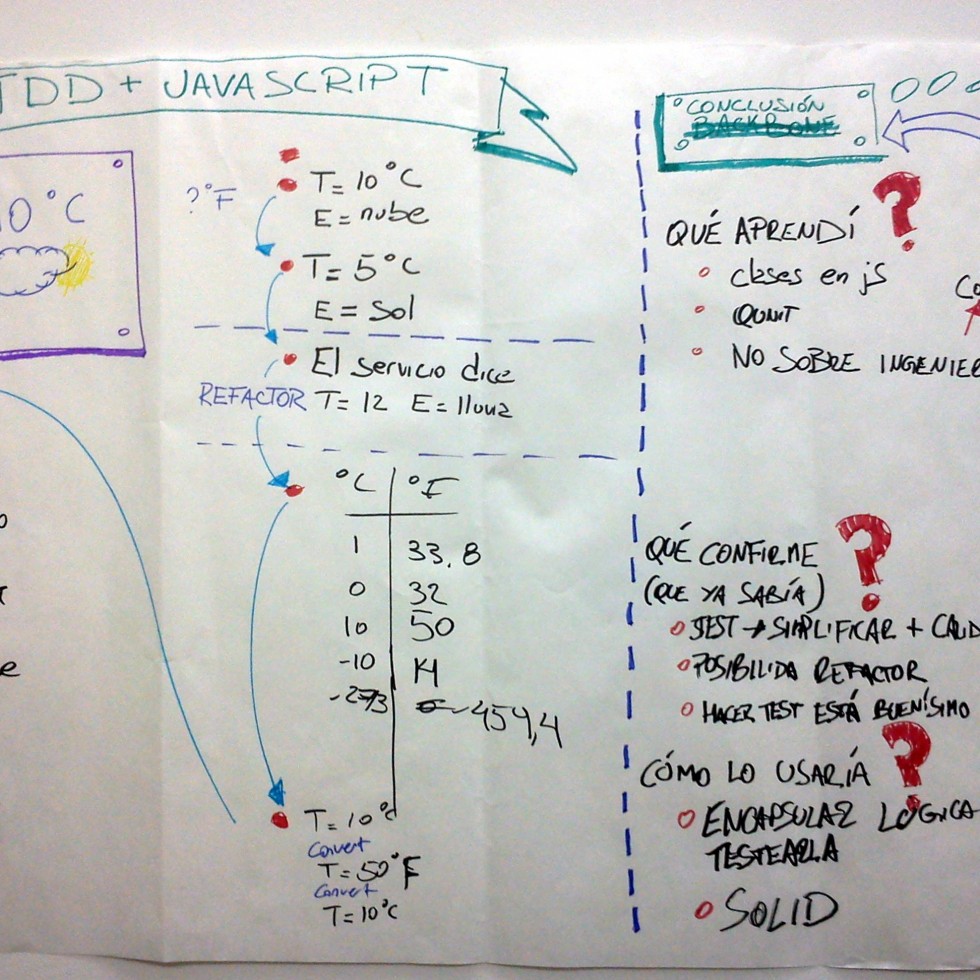 TDD + JAVASCRIPT
10°C
?°F
T= 10°C
E= nube
T= 5°C
E= Sol
El servicio dice
REFACTOR T= 12 E= lluvia
°C °F
1 33.8
0 32
10 50
-10 14
-273 -459,4
T= 10°C
Convert
T= 50°F
Convert
T= 10°C
CONCLUSIÓN
BACKBONE
QUÉ APRENDÍ ?
clases en js
QUNIT
NO SOBRE INGENIER
QUÉ CONFIRME ?
(QUE YA SABÍA)
TEST → SIMPLIFICAR + CALID
POSIBILIDA REFACTOR
HACER TEST ESTÁ BUENÍSIMO
CÓMO LO USARÍA ?
ENCAPSULAR LÓGICA
TESTEARLA
SOLID